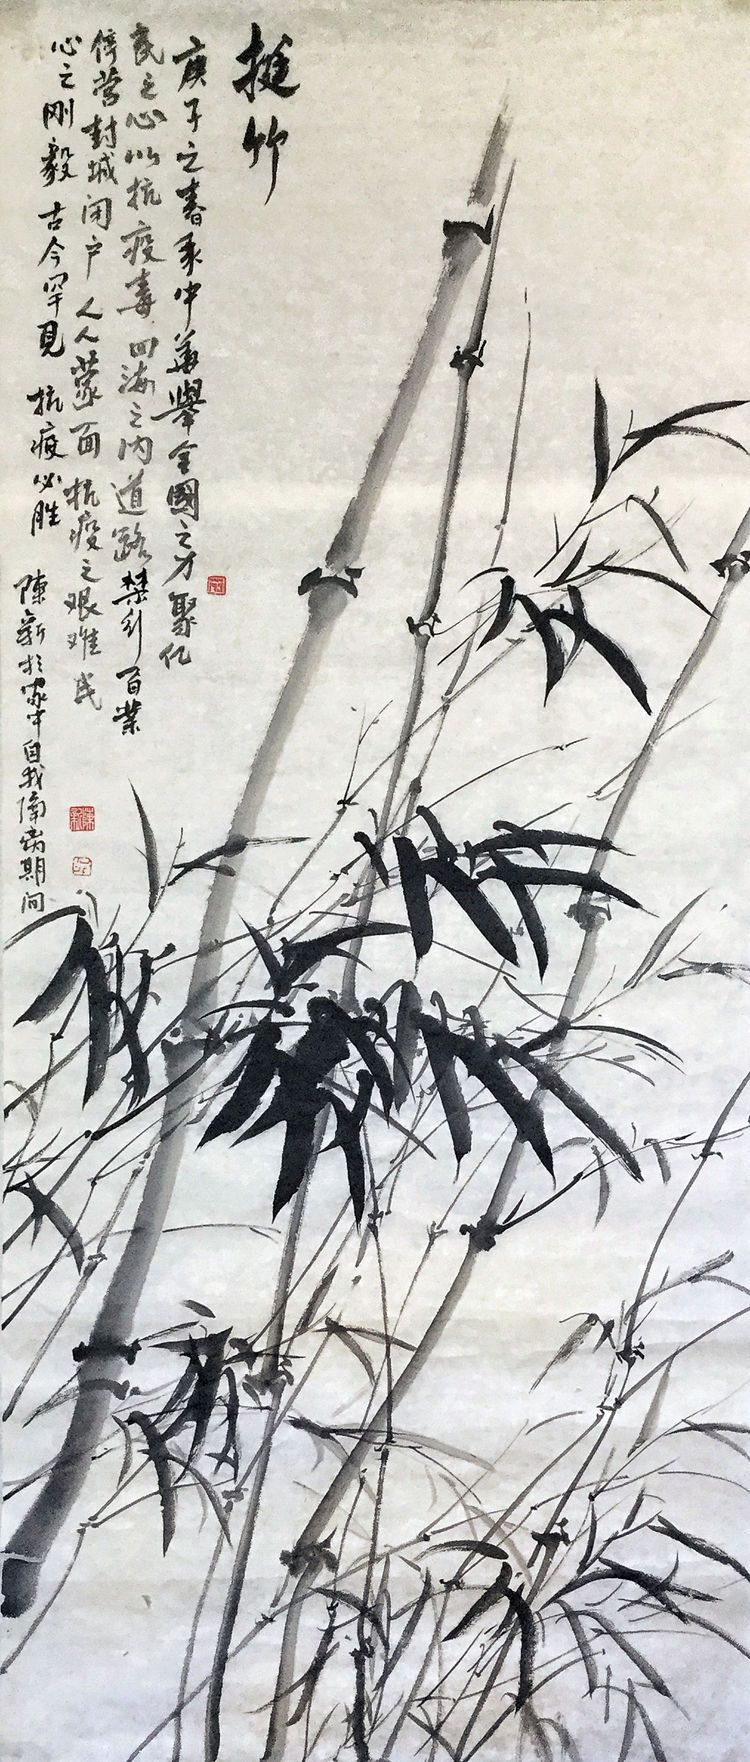 挺竹
庚子之春 我中華舉全國之力 聚亿
民之心以抗疫毒 四海之内道路禁行 百業
停营封城闭户 人人蒙面 抗疫之艰难 民
心之刚毅 古今罕見 抗疫必胜
陳新於家中自我隔离期间
陳新